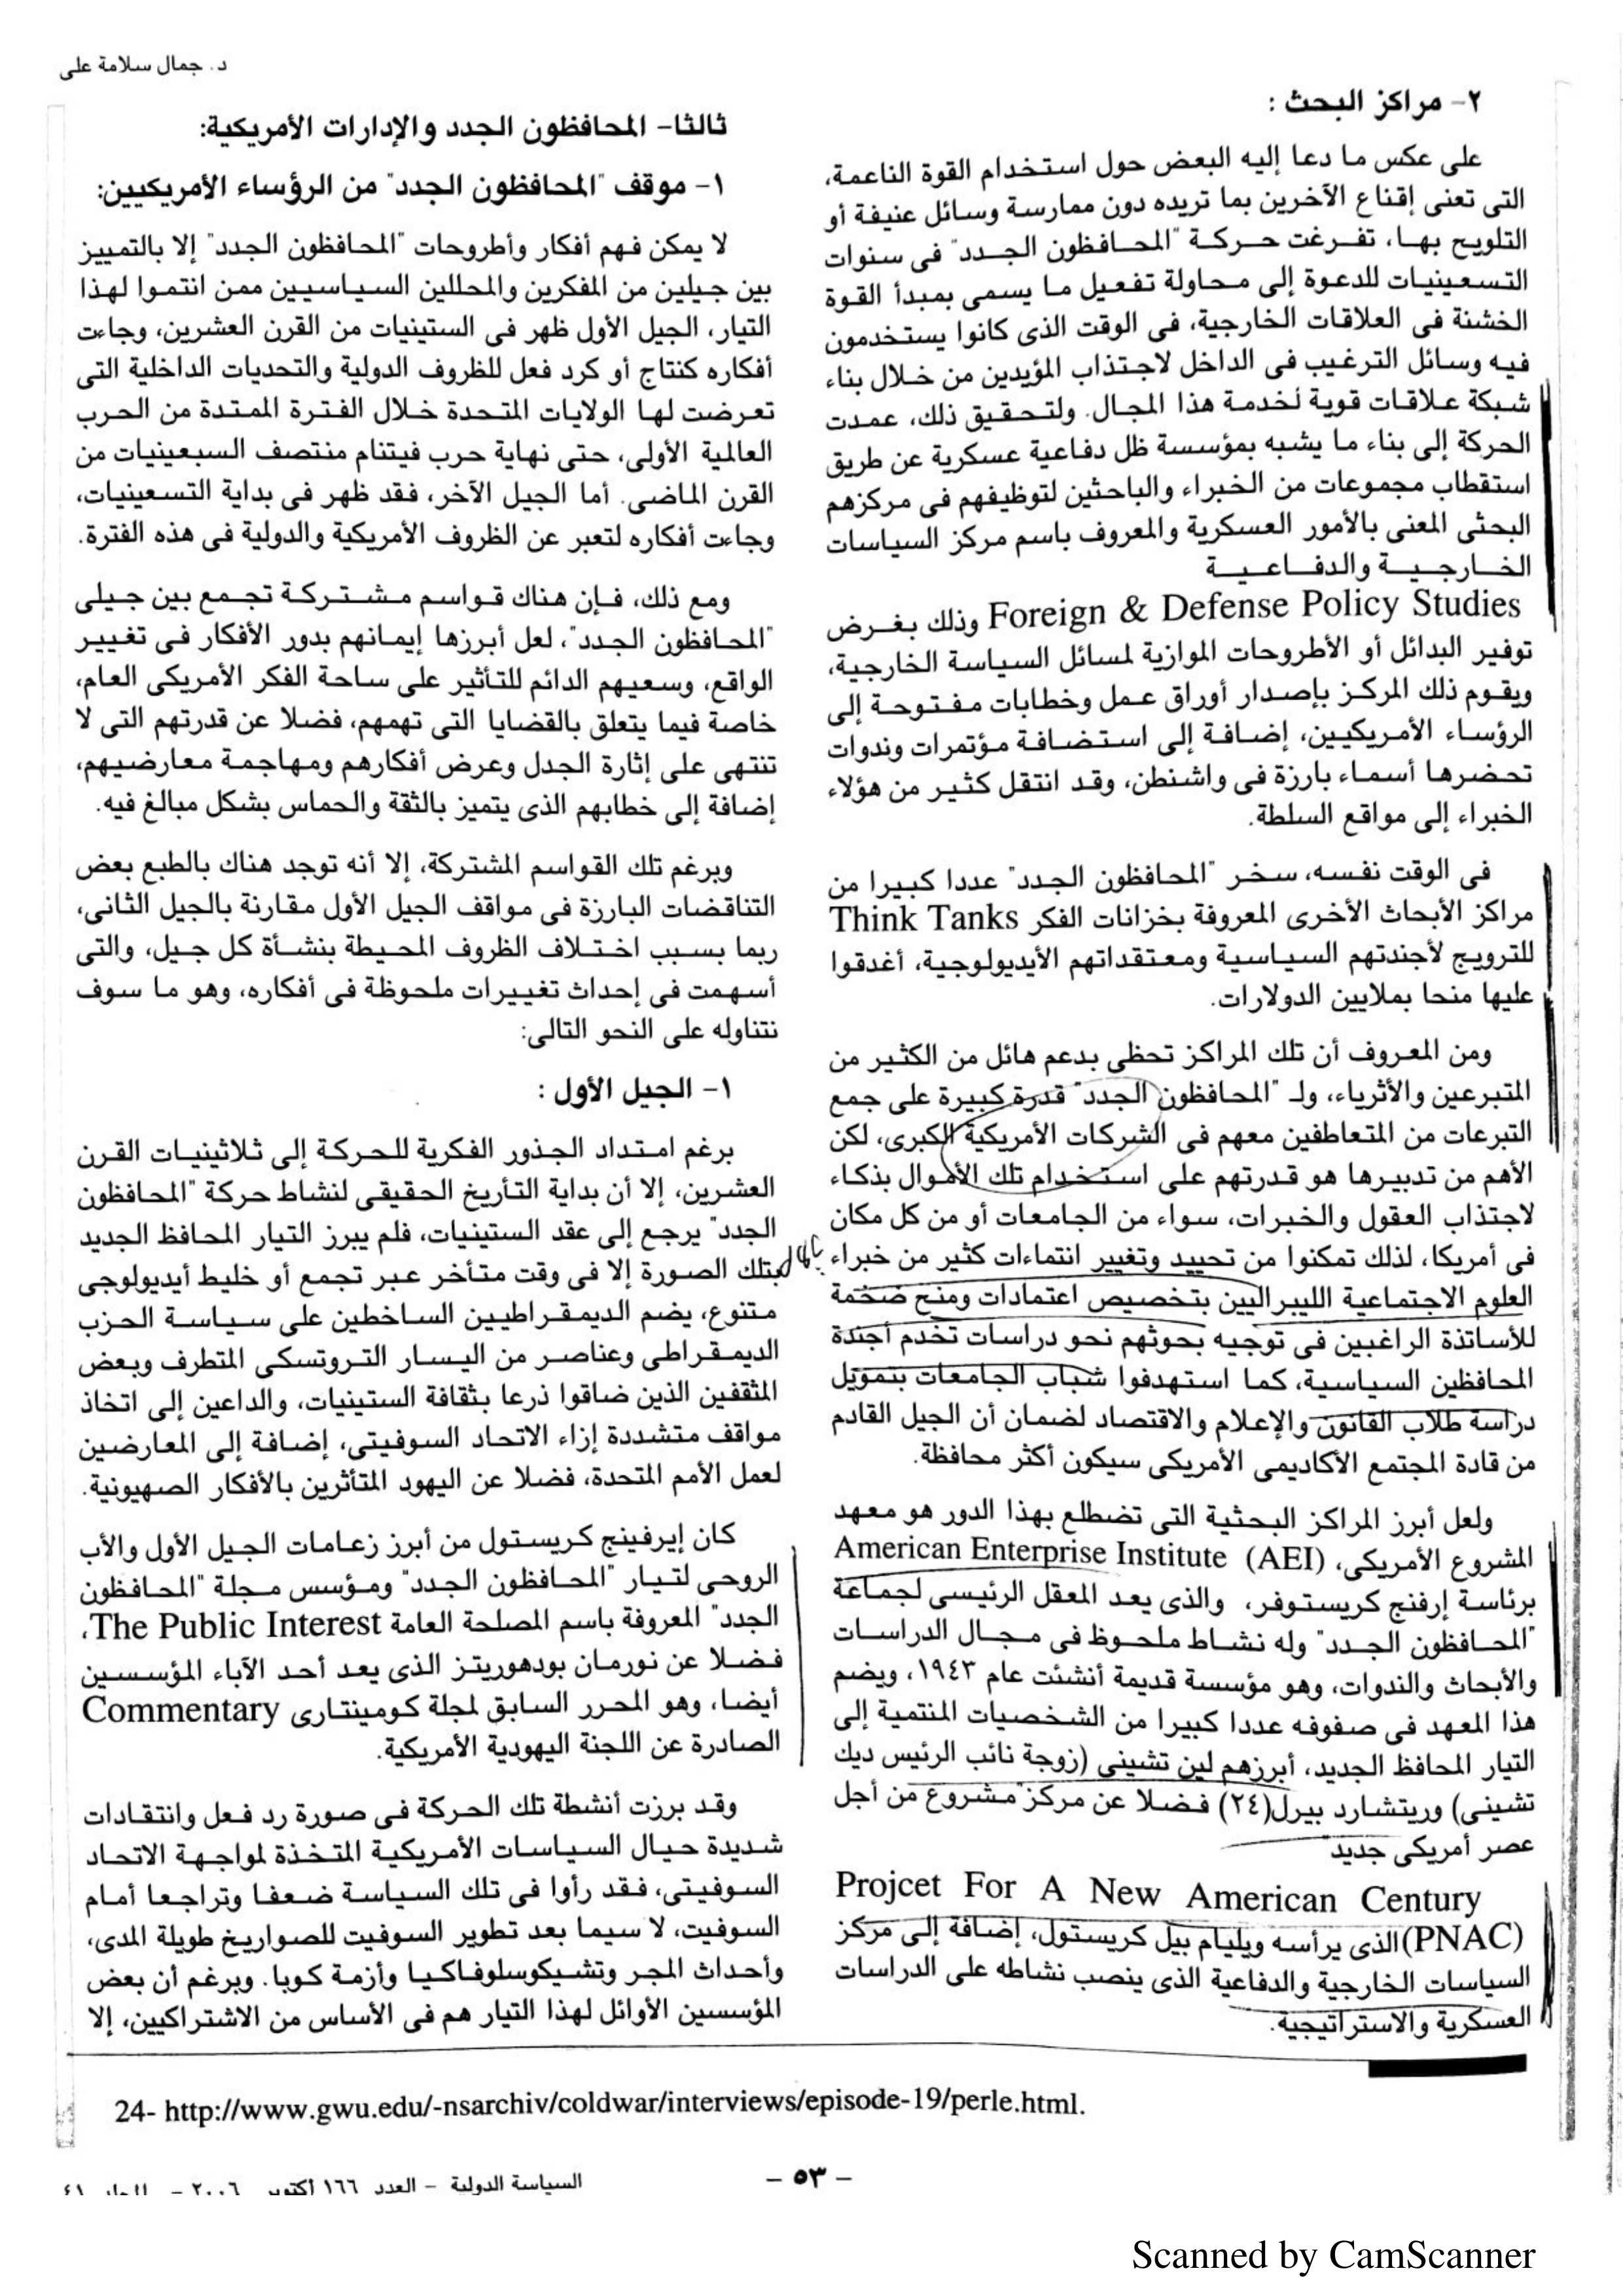 د. جمال سلامة على
٢- مراكز البحث :
على عكس ما دعا إليه البعض حول استخدام القوة الناعمة،
التى تعنى إقناع الآخرين بما تريده دون ممارسة وسائل عنيفة أو
التلويح بها، تفرغت حركة "المحافظون الجدد" فى سنوات
التسعينيات للدعوة إلى محاولة تفعيل ما يسمى بمبدأ القوة
الخشنة فى العلاقات الخارجية، فى الوقت الذى كانوا يستخدمون
فيه وسائل الترغيب فى الداخل لاجتذاب المؤيدين من خلال بناء
شبكة علاقات قوية لخدمة هذا المجال. ولتحقيق ذلك، عمدت
الحركة إلى بناء ما يشبه بمؤسسة ظل دفاعية عسكرية عن طريق
استقطاب مجموعات من الخبراء والباحثين لتوظيفهم فى مركزهم
البحثى المعنى بالأمور العسكرية والمعروف باسم مركز السياسات
الخارجية والدفاعية
Foreign & Defense Policy Studies وذلك بغرض
توفير البدائل أو الأطروحات الموازية لمسائل السياسة الخارجية،
ويقوم ذلك المركز بإصدار أوراق عمل وخطابات مفتوحة إلى
الرؤساء الأمريكيين، إضافة إلى استضافة مؤتمرات وندوات
تحضرها أسماء بارزة فى واشنطن، وقد انتقل كثير من هؤلاء
الخبراء إلى مواقع السلطة.
فى الوقت نفسه، سخر "المحافظون الجدد" عددا كبيرا من
مراكز الأبحاث الأخرى المعروفة بخزانات الفكر Think Tanks
للترويج لأجندتهم السياسية ومعتقداتهم الأيديولوجية، أغدقوا
عليها منحا بملايين الدولارات.
ومن المعروف أن تلك المراكز تحظى بدعم هائل من الكثير من
المتبرعين والأثرياء، ولـ "المحافظون الجدد" قدرة كبيرة على جمع
التبرعات من المتعاطفين معهم فى الشركات الأمريكية الكبرى، لكن
الأهم من تدبيرها هو قدرتهم على استخدام تلك الأموال بذكاء
لاجتذاب العقول والخبرات، سواء من الجامعات أو من كل مكان
فى أمريكا، لذلك تمكنوا من تحييد وتغيير انتماءات كثير من خبراء
العلوم الاجتماعية الليبراليين بتخصيص اعتمادات ومنح ضخمة
للأساتذة الراغبين فى توجيه بحوثهم نحو دراسات تخدم أجندة
المحافظين السياسية، كما استهدفوا شباب الجامعات بتمويل
دراسة طلاب القانون والإعلام والاقتصاد لضمان أن الجيل القادم
من قادة المجتمع الأكاديمى الأمريكى سيكون أكثر محافظة.
ولعل أبرز المراكز البحثية التى تضطلع بهذا الدور هو معهد
المشروع الأمريكى، American Enterprise Institute (AEI)
برئاسة إرفنج كريستوفر، والذى يعد المعقل الرئيسى لجماعة
"المحافظون الجدد" وله نشاط ملحوظ فى مجال الدراسات
والأبحاث والندوات، وهو مؤسسة قديمة أنشئت عام ١٩٤٣، ويضم
هذا المعهد فى صفوفه عددا كبيرا من الشخصيات المنتمية إلى
التيار المحافظ الجديد، أبرزهم لين تشينى (زوجة نائب الرئيس ديك
تشينى) وريتشارد بيرل(٢٤) فضلا عن مركز "مشروع من أجل
عصر أمريكى جديد
Projcet For A New American Century
(PNAC)الذى يرأسه ويليام بيل كريستول، إضافة إلى مركز
السياسات الخارجية والدفاعية الذى ينصب نشاطه على الدراسات
العسكرية والاستراتيجية.
ثالثا- المحافظون الجدد والإدارات الأمريكية:
١- موقف "المحافظون الجدد" من الرؤساء الأمريكيين:
لا يمكن فهم أفكار وأطروحات "المحافظون الجدد" إلا بالتمييز
بين جيلين من المفكرين والمحللين السياسيين ممن انتموا لهذا
التيار، الجيل الأول ظهر فى الستينيات من القرن العشرين، وجاءت
أفكاره كنتاج أو كرد فعل للظروف الدولية والتحديات الداخلية التى
تعرضت لها الولايات المتحدة خلال الفترة الممتدة من الحرب
العالمية الأولى، حتى نهاية حرب فيتنام منتصف السبعينيات من
القرن الماضى. أما الجيل الآخر، فقد ظهر فى بداية التسعينيات،
وجاءت أفكاره لتعبر عن الظروف الأمريكية والدولية فى هذه الفترة.
ومع ذلك، فإن هناك قواسم مشتركة تجمع بين جيلى
"المحافظون الجدد"، لعل أبرزها إيمانهم بدور الأفكار فى تغيير
الواقع، وسعيهم الدائم للتأثير على ساحة الفكر الأمريكى العام،
خاصة فيما يتعلق بالقضايا التى تهمهم، فضلا عن قدرتهم التى لا
تنتهى على إثارة الجدل وعرض أفكارهم ومهاجمة معارضيهم،
إضافة إلى خطابهم الذى يتميز بالثقة والحماس بشكل مبالغ فيه.
وبرغم تلك القواسم المشتركة، إلا أنه توجد هناك بالطبع بعض
التناقضات البارزة فى مواقف الجيل الأول مقارنة بالجيل الثانى،
ربما بسبب اختلاف الظروف المحيطة بنشأة كل جيل، والتى
أسهمت فى إحداث تغييرات ملحوظة فى أفكاره، وهو ما سوف
نتناوله على النحو التالى:
١- الجيل الأول :
برغم امتداد الجذور الفكرية للحركة إلى ثلاثينيات القرن
العشرين، إلا أن بداية التأريخ الحقيقى لنشاط حركة "المحافظون
الجدد" يرجع إلى عقد الستينيات، فلم يبرز التيار المحافظ الجديد
بتلك الصورة إلا فى وقت متأخر عبر تجمع أو خليط أيديولوجى
متنوع، يضم الديمقراطيين الساخطين على سياسة الحزب
الديمقراطى وعناصر من اليسار التروتسكى المتطرف وبعض
المثقفين الذين ضاقوا ذرعا بثقافة الستينيات، والداعين إلى اتخاذ
مواقف متشددة إزاء الاتحاد السوفيتى، إضافة إلى المعارضين
لعمل الأمم المتحدة، فضلا عن اليهود المتأثرين بالأفكار الصهيونية.
كان إيرفينج كريستول من أبرز زعامات الجيل الأول والأب
الروحى لتيار "المحافظون الجدد" ومؤسس مجلة "المحافظون
الجدد" المعروفة باسم المصلحة العامة The Public Interest،
فضلا عن نورمان بودهوريتز الذى يعد أحد الآباء المؤسسين
أيضا، وهو المحرر السابق لمجلة كومينتارى Commentary
الصادرة عن اللجنة اليهودية الأمريكية.
وقد برزت أنشطة تلك الحركة فى صورة رد فعل وانتقادات
شديدة حيال السياسات الأمريكية المتخذة لمواجهة الاتحاد
السوفيتى، فقد رأوا فى تلك السياسة ضعفا وتراجعا أمام
السوفيت، لا سيما بعد تطوير السوفيت للصواريخ طويلة المدى،
وأحداث المجر وتشيكوسلوفاكيا وأزمة كوبا. وبرغم أن بعض
المؤسسين الأوائل لهذا التيار هم فى الأساس من الاشتراكيين، إلا
24- http://www.gwu.edu/-nsarchiv/coldwar/interviews/episode-19/perle.html.
- ٥٣ -
السياسة الدولية - العدد ١٦٦ أكتوبر ٢٠٠٦ - المجلد ٤١
Scanned by CamScanner